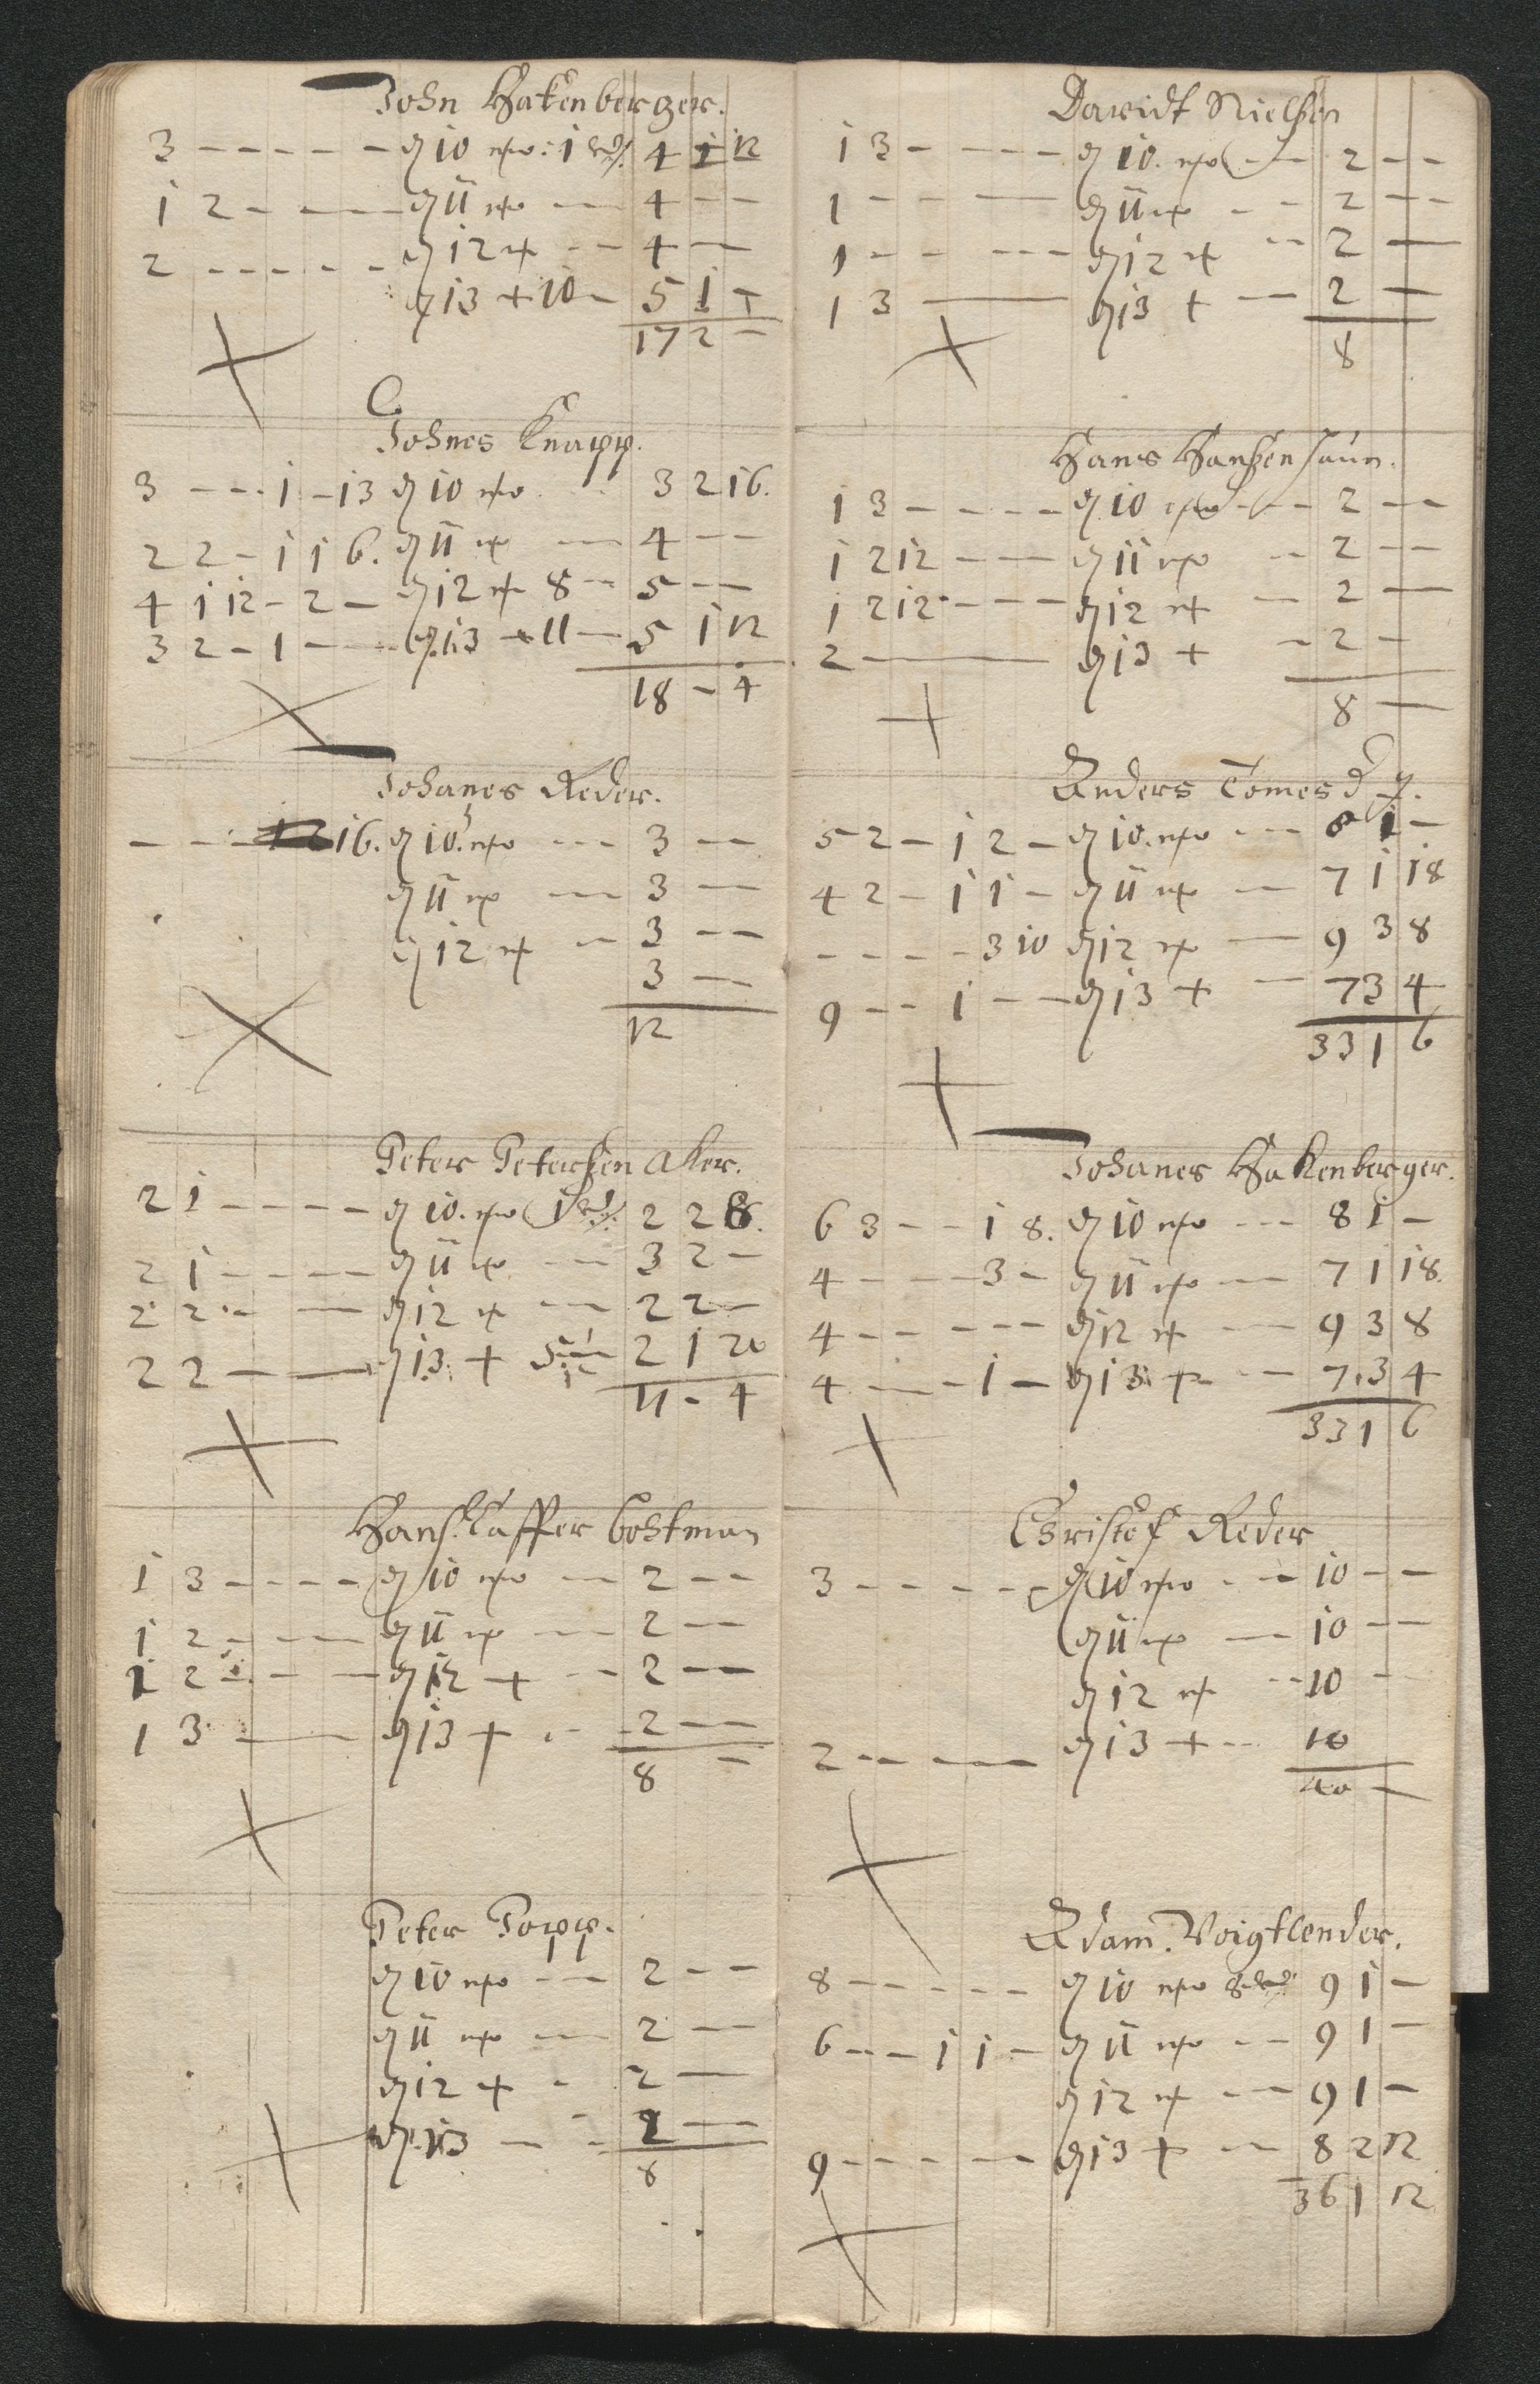 John Hakenberger.
3 - - - - - 10 1 4 1 12
1 2 - - - 11 - - 4 - -
2 - - - - - 12 - - 4 -
13 + 10 - 5 1 -
17 2 -
Johnes Knapp.
3 - - 1 - 13 10 3 2 16.
2 2 - 1 1 6. 11 - 4 - -
4 1 12 - 2 - 12 8 - 5 - -
3 2 - 1 - - 13 + 11 - 5 1 12
18 - 4
Johanes Reder.
- - - 16. 10 - - 3 - -
11 - - 3 - -
12 - 3 - -
3 - -
12
Peter Petersen Aker.
2 1 - - - - 10. 1 2 2 8.
2 1 - - - - 11 - - 3 2 -
2 2 - - - 12 - - 2 2 -
2 2 - - 13 + 5 2 1 20
11 - 4
Hans Casper Costman
1 3 - - - - 10 - 2 - -
1 2 - - - 11 - 2 - -
1 2 - - - 12 + - 2 - -
1 3 - - 13 + - 2 - -
8 -
Peter Popp.
10 - - 2 - -
11 - - 2 - -
12 + - 2 -
13 - - 2 - -
8
Davidt Nielsen
1 3 - - - - 10. - - 2 - -
1 - - - 11 - - 2 - -
1 - - - - 12 - - 2 -
1 3 - - 13 + - 2 -
8
Hans Hansen
1 3 - - - - 10 - - 2 - -
1 2 12 - - 11 - 2 - -
1 2 12 - - - 12 - 2 -
2 - 13 + - 2 -
8 -
Anders Tomes
5 2 - 1 2 - 10. - - 8 1 -
4 2 - 1 1 - 11 - 7 1 18
- - - - 3 10 12 - 9 3 8
9 - - 1 - - 13 + - 7 3 4
33 1 6
Johanes Hakenberger.
6 3 - - 1 8. 10 - - 8 1 -
4 - - - 3 - 11 - 7 1 18.
4 - - - - - 12 - 9 3 8
4 - - 1 - 13 + - 7 3 4
33 1 6
Christof Reder
3 - - - - - 10 - - 10 - -
11 - 10 - -
12 - - 10 -
2 - - - 13 + - - 10
40 -
Adam Voigtlender.
8 - - - - - 10 8 9 1 -
6 - - 1 1 - 11 - - 9 1 -
12 - - 9 1 -
9 - - - - - 13 + - 8 2 12
36 1 12